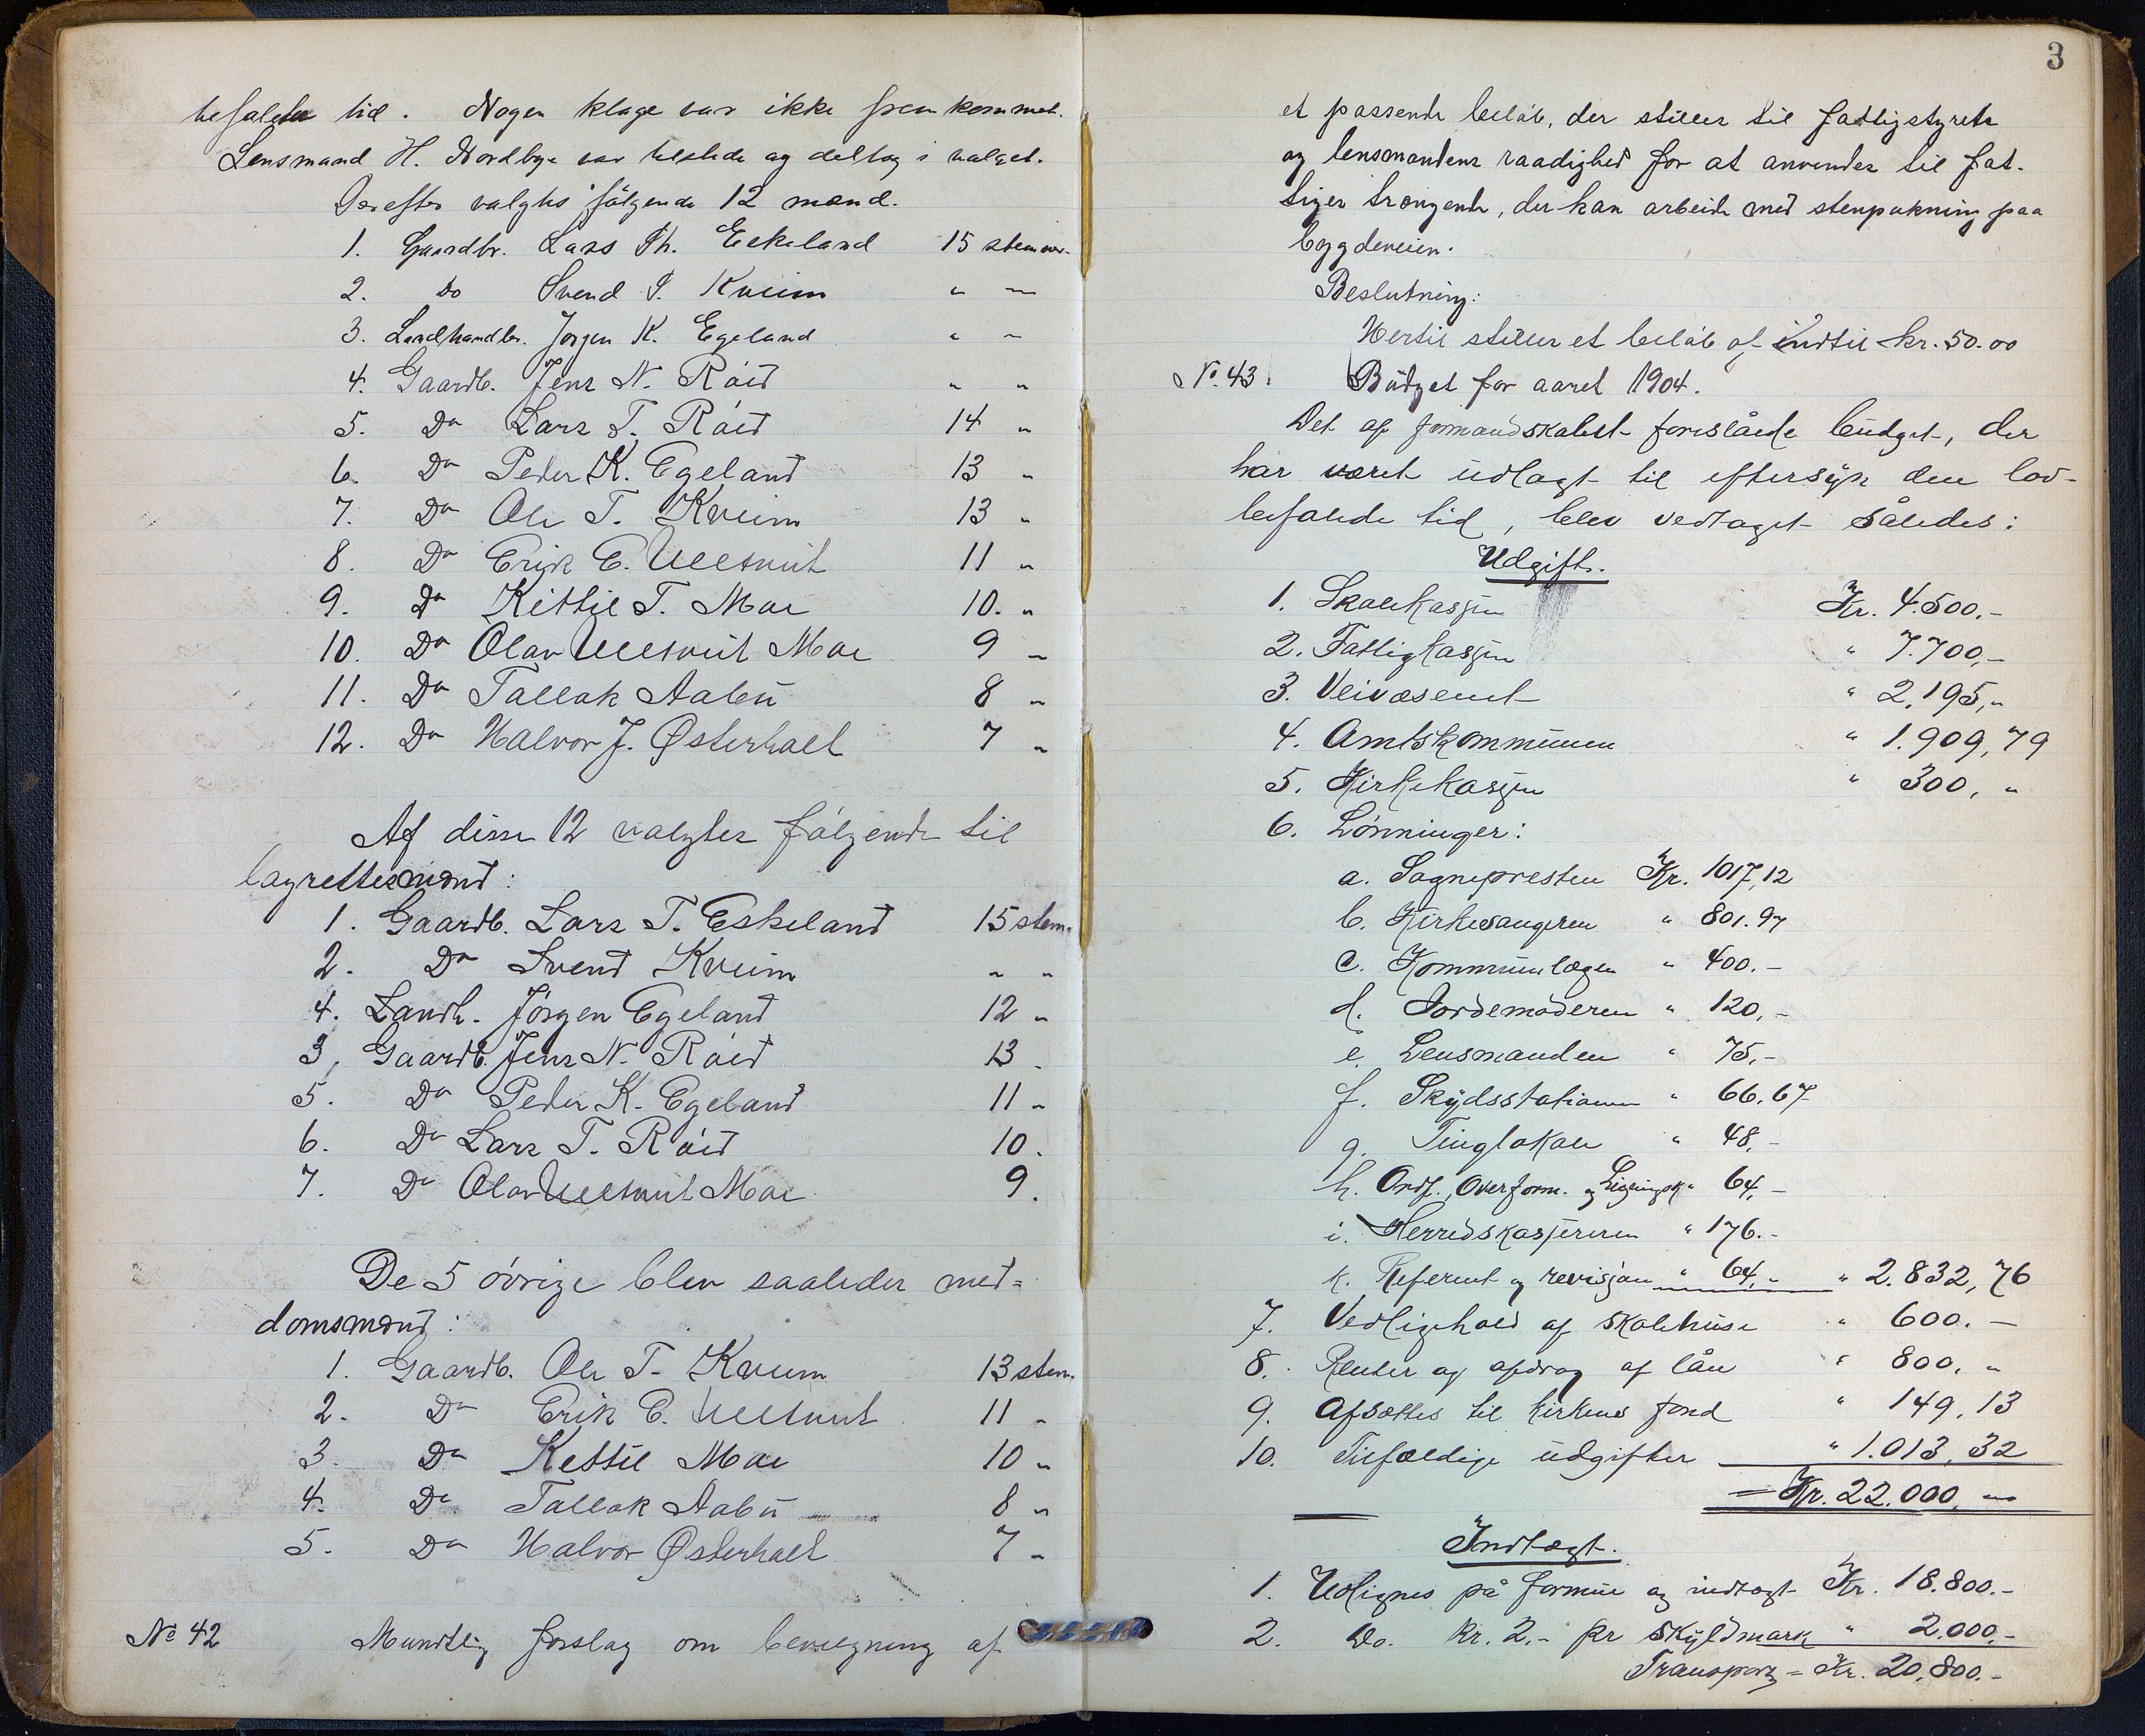 befalede tid. Nogen klage var ikke fremkommet.
Lensmand H. Nordbye var tilstede og deltog i valget.
Derefter valgtes følgende 12 mænd.
1. Gaardbr. Lars Th. Eskeland 15 stemmer.
2. Do Svend S. Kveim " —
3. Landhandler. Jørgen K. Egeland " —
4. Gaardb. Jens N. Röid " "
5. Do Lars T. Röid 14 "
6. Do Peder K. Egeland 13 "
7. Do Ole T. Kveim 13 "
8. Do Erik E. Ullsvit 11 "
9. Do Kittil T. Moe 10. "
10. Do Olav Ullsvit Moe 9 "
11. Do Tallak Aabü 8 "
12. Do Halvor J. Østerhalt 7 "
Af disse 12 valgtes følgende til
lagrettesmænd:
1. Gaardb. Lars T. Eskeland 15 stem.
2. Do Svend Kveim " "
4. Landh. Jörgen Egeland 12 "
3, Gaardb. Jens N. Röid 13 "
5. Do Peder K. Egeland 11 "
6. Do Lars T. Röid 10.
7. Do Olav Ullsvit Moe 9.
De 5 övrige blev saaledes med=
domsmænd:
1. Gaardb. Ole T. Kveim 13 stem.
2. Do Erik E. Ullsvit 11 "
3. Do Kettil Moe 10 "
4. Do Tallak Aabü 8 "
5. Do Halvor Østerhalt 7 "
No 42 Mundtlig forslag om bevilgning af
3
et passende belöb, der stilles til fattigstyrets
og lensmandens raadighed for at anvendes til fat-
tiges trængende, der kan arbeide med stenpukning paa
bygdeveien.
Beslutning:
Hertil stilles et belöb af indtil kr. 50.00
No. 43. Büdget for aaret 1904.
Det af formandskabet foreslåede büdget, der
har været üdlagt til eftersÿn den lov-
befalede tid, blev vedtaget således:
Udgift.
1. Skolekassen Kr. 4.500.-
2. Fattigkassen " 7.700,-
3. Veivæsenet " 2,195,"
4. Amtskommünen " 1.909,79
5. Kirkekassen " 300, "
6. Lönninger:
a. Sognepresten Kr. 1017,12
b. Kirkesangeren " 801.97
c. Kommünelægen " 400.-
d. Jordemoderen " 120,-
e. Lensmanden " 75,-
f. Skÿdsstationen " 66.67
g. Tinglokale " 48,-
h. Ordf., Overform. og Ligningsk. " 64,-
i. Herredskasjereren " 176.-
k. Referent og revisjon " 64,- " 2.832,76
7. Vedligehold af skolehüse " 600.—
8. Renter og afdrag af lån " 800, "
9. Afsættes til kirkens fond " 149,13
10. Tilfældige üdgifter " 1.013,32
= Kr. 22.000, —
Indtægt.
1. Udlignes på formüe og indtægt Kr. 18.800.-
2. Do. kr. 2,- pr skÿldmark " 2.000,-
Transport = Kr. 20,800.-